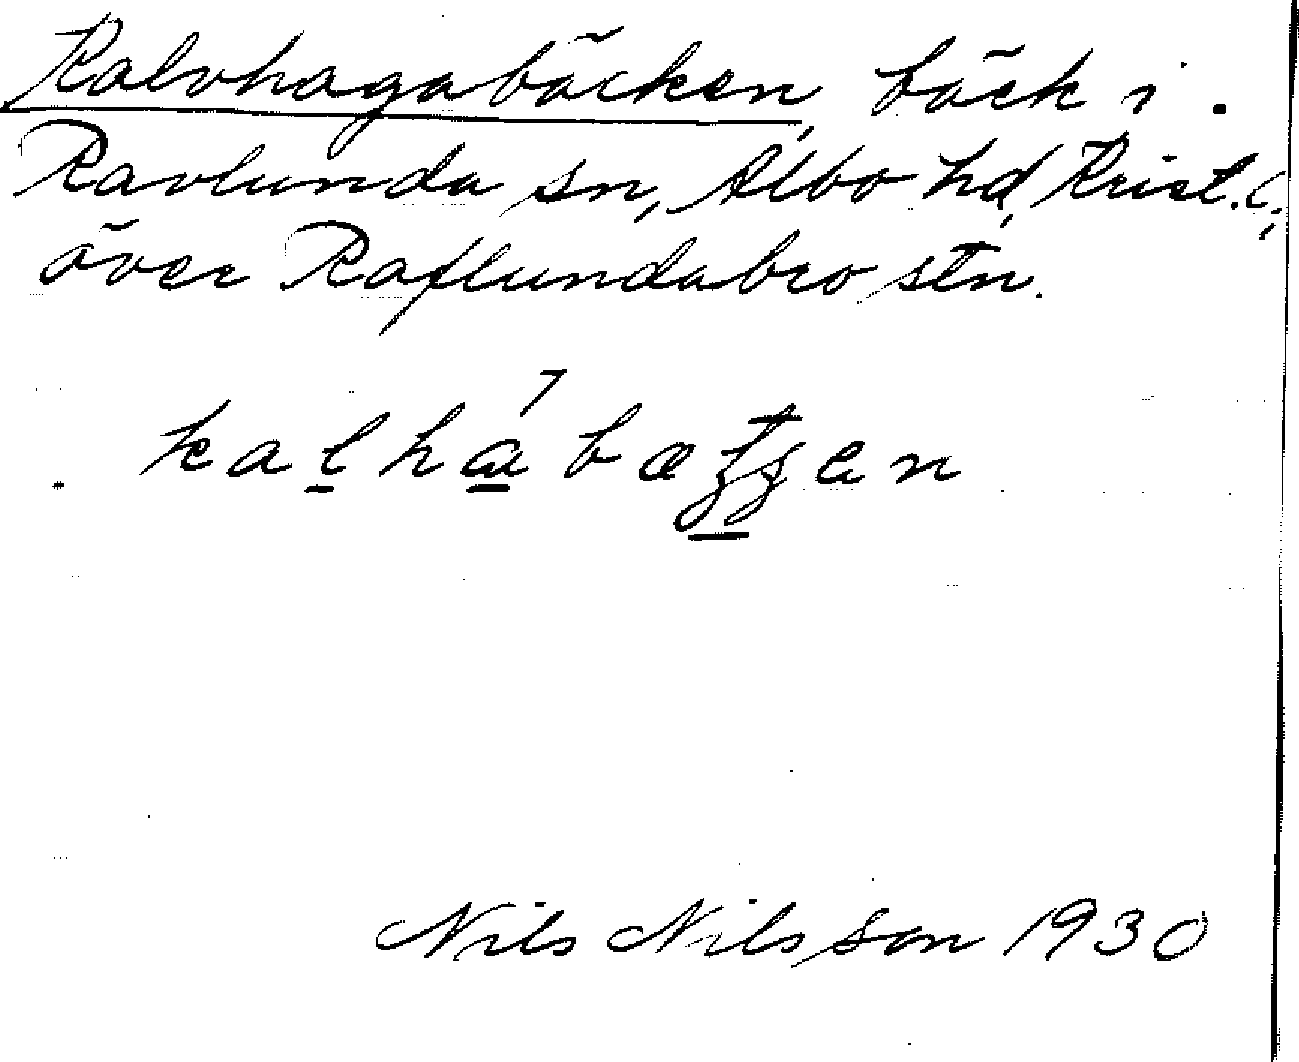 Kalvhagabäcken, bäck i
Ravlunda sn, Albo hd, Krist. l.;
över Raflundabro stn.
Nils Nilsson 1930